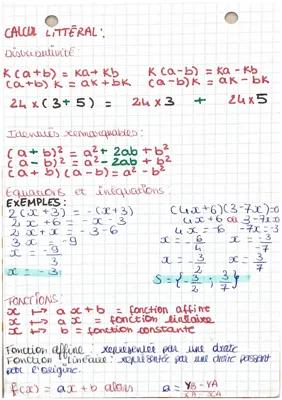 CALCUL LITTÉRAL:
Distributivité:
K(a+b) = Ka+Kb K(a-b) = Ka-Kb
(a+b)K = aK+bK (a-b)K = aK-bK
24 x (3+5) = 24 x 3 + 24 x 5
Identités remarquables:
(a+b)² = a²+2ab+b²
(a-b)² = a²-2ab+b²
(a+b)(a-b) = a²-b²
Équations et inéquations:
EXEMPLES:
2(x+3) = -(x+3) (4x+6)(3-7x)=0
2x+6 = -x-3 4x+6 ou 3-7x
2x+x = -3-6 4x=-6 -7x=-3
3x = -9 x = -6/4 x = -3/-7
x = -9/3 x = -3/2 x = 3/7
x = -3 S = {-3/2 ; 3/7}
FONCTIONS:
x ↦ ax+b = fonction affine
x ↦ ax = fonction linéaire
x ↦ b = fonction constante
Fonction affine: représentée par une droite
Fonction linéaire: représentée par une droite passant
par l'origine.
f(x) = ax+b alors a = yB-yA / xB-xA